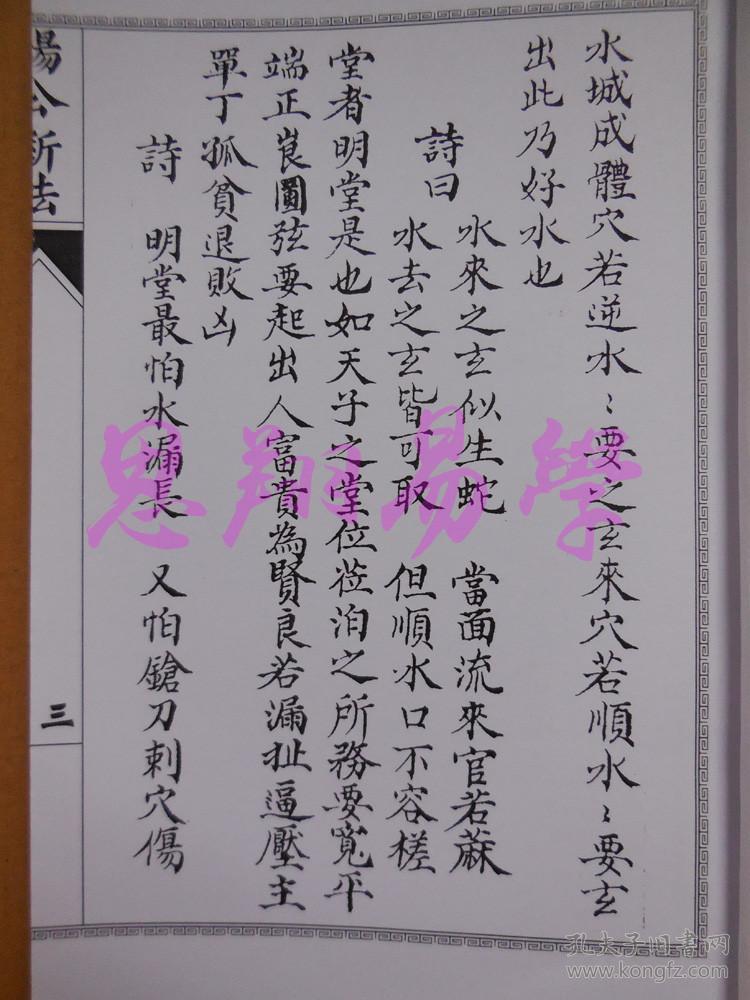 水城成體穴若逆水〻要之玄來穴若順水〻要玄
出此乃好水也
詩曰
水來之玄似生蛇 當面流來官若蔴
水去之玄皆可取 但順水口不容槎
堂者明堂是也如天子之堂位蒞泊之所務要寬平
端正峎圖弦要起出人富貴為賢良若漏扯逼壓主
單丁孤貧退敗凶
詩 明堂最怕水漏長 又怕鎗刀刺穴傷
楊公斩法
三
思翔易學
孔夫子旧书网
www.kongfz.com